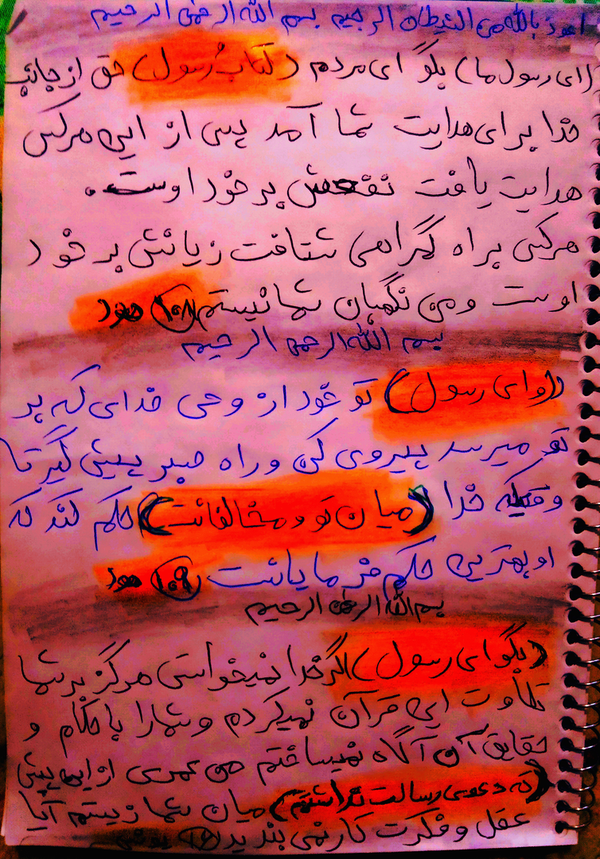 اعوذ بالله من الشیطان الرجیم بسم الله الرحمن الرحیم
(ای رسول ما) بگو ای مردم (کتاب رسول) حق از جانب
خدا برای هدایت شما آمد پس از این هر کس
هدایت یافت نفعش بر خود اوست.
هر کس براه گمراهی شتافت زیانش بر خود
اوست و من نگهبان شما نیستم ۱۰۸ هود
بسم الله الرحمن الرحیم
(و ای رسول) تو خود از وحی خدای که بر
تو میرسد پیروی کن و راه صبر پیش گیر تا
وقتیکه خدا (میان تو و مخالفانت) حکم کند که
او بهترین حکم فرمایانست ۱۰۹ هود
بسم الله الرحمن الرحیم
(بگو ای رسول) اگر خدا نمیخواستی هرگز بر شما
تلاوت این قرآن نمیکردم و شما را باحکام و
حقایق آن آگاه نمیساختم من عمری از این پیش
(که دعوی رسالت نداشتم) میان شما زیستم آیا
عقل و فکرت کار نمی بندید ۱۶